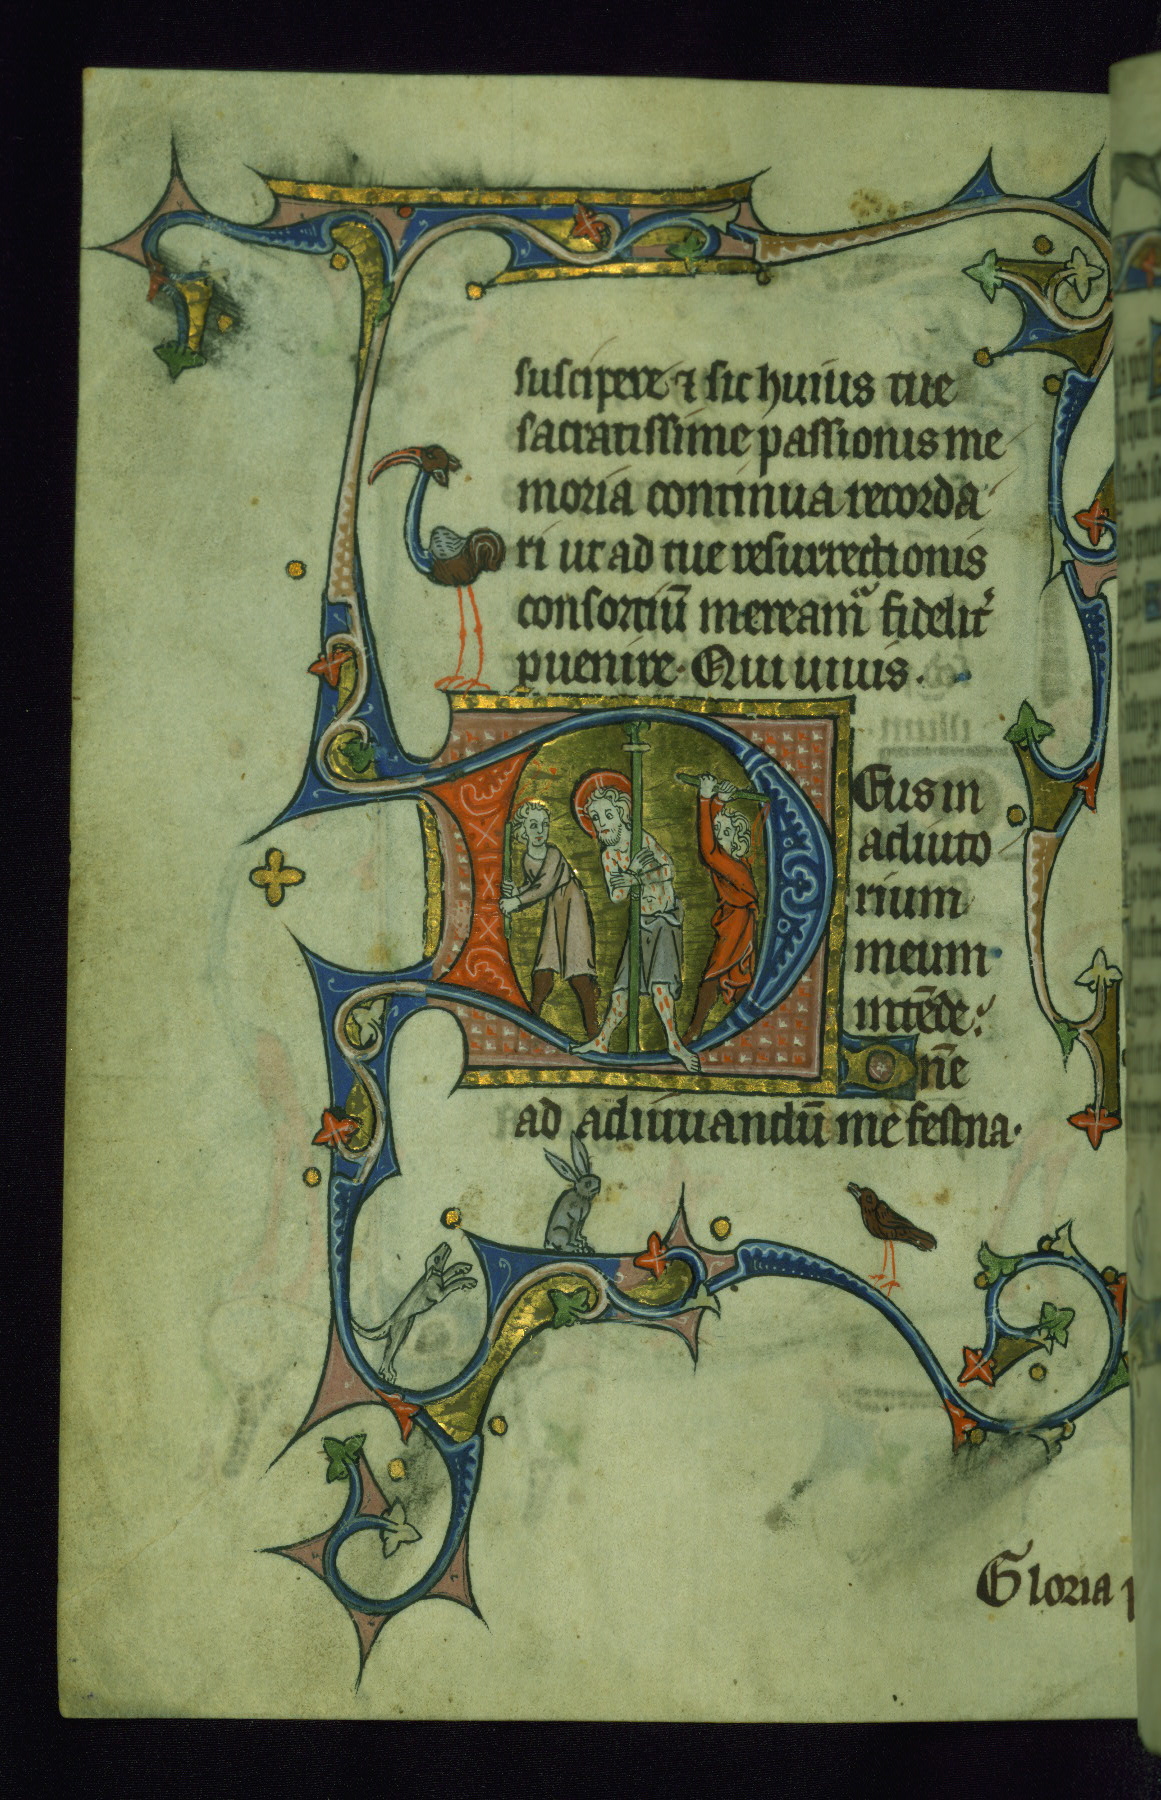 suscipere ⁊ sic huius tue
sacratissime passionis me
moria continua recorda
ri ut ad tue resurrectionis
consortiū mereamᷣ fidelit᷑
puenire. Qui uiuis.
Deus in
adiuto
rium
meum
intēde.
Dn̄e
ad adiuuandū me festina.
Gloria p